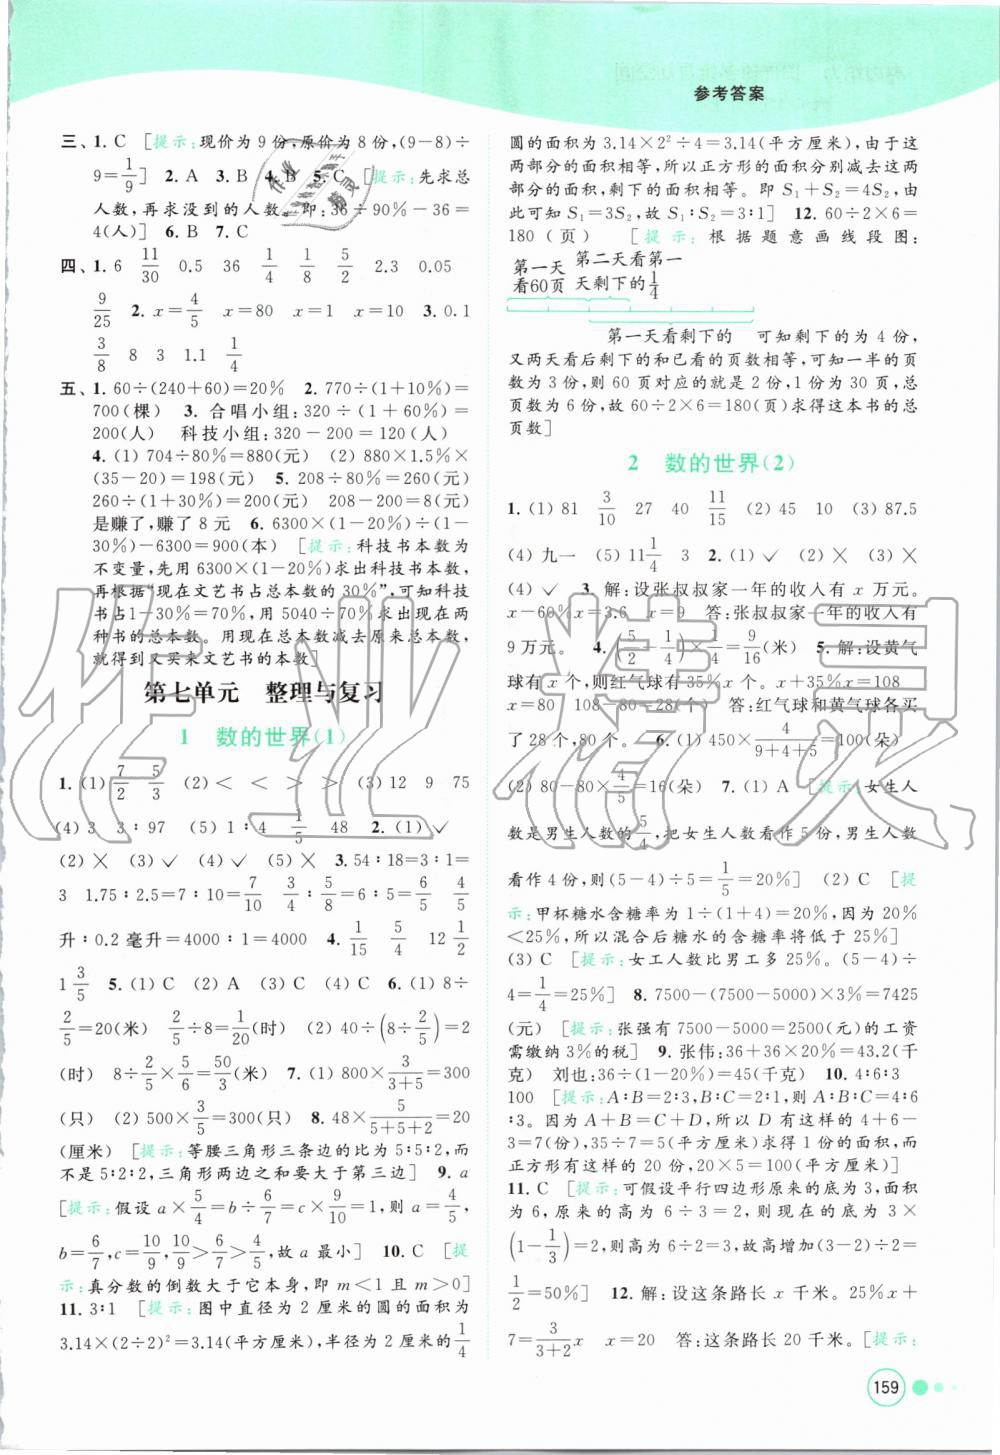 参考答案
三、1. C [提示:现价为9份,原价为8份,(9−8)÷
9=1/9] 2. A 3. B 4. B 5. C [提示:先求总
人数,再求没到的人数。即:36÷90%−36=
4(人)] 6. B 7. C
四、1. 6 11/30 0.5 36 1/4 1/8 5/2 2.3 0.05
9/25 2. x=4/5 x=80 x=1 x=10 3. 0.1
3/8 8 3 1.1 1/4
五、1. 60÷(240+60)=20% 2. 770÷(1+10%)=
700(棵) 3. 合唱小组:320÷(1+60%)=
200(人) 科技小组:320−200=120(人)
4. (1) 704÷80%=880(元) (2) 880×1.5%×
(35−20)=198(元) 5. 208÷80%=260(元)
260÷(1+30%)=200(元) 208−200=8(元)
是赚了,赚了8元 6. 6300×(1−20%)÷(1−
30%)−6300=900(本) [提示:科技书本数为
不变量,先用6300×(1−20%)求出科技书本数,
再根据“现在文艺书占总本数的30%”,可知科技
书占1−30%=70%,用5040÷70%求出现在两
种书的总本数。用现在总本数减去原来总本数,
就得到又买来文艺书的本数]
第七单元 整理与复习
1 数的世界(1)
1. (1) 7/2 5/3 (2) < < > > (3) 12 9 75
(4) 3 3∶97 (5) 1∶4 1/5 48 2. (1) ✓
(2) ✕ (3) ✓ (4) ✓ (5) ✕ 3. 54∶18=3∶1=
3 1.75∶2.5=7∶10=7/10 3/4∶5/8=6∶5=6/5 4/5
升∶0.2毫升=4000∶1=4000 4. 1/15 5/4 12 1/2
1 3/5 5. (1) C (2) A (3) C (4) C 6. (1) 8÷
2/5=20(米) 2/5÷8=1/20(时) (2) 40÷(8÷2/5)=2
(时) 8÷2/5×5/6=50/3(米) 7. (1) 800×3/(3+5)=300
(只) (2) 500×3/5=300(只) 8. 48×5/(5+5+2)=20
(厘米) [提示:等腰三角形三条边的比为5∶5∶2,而
不是5∶2∶2,三角形两边之和要大于第三边] 9. a
[提示:假设a×5/4=b÷6/7=c×9/10=1,则a=4/5,
b=6/7,c=10/9,10/9>6/7>4/5,故a最小] 10. C [提
示:真分数的倒数大于它本身,即m<1且m>0]
11. 3∶1 [提示:图中直径为2厘米的圆的面积为
3.14×(2÷2)²=3.14(平方厘米),半径为2厘米的1/4
圆的面积为3.14×2²÷4=3.14(平方厘米),由于这
两部分的面积相等,所以正方形的面积分别减去这两
部分的面积,剩下的面积相等。即S₁+S₂=4S₂,由
此可知S₁=3S₂,故S₁∶S₂=3∶1] 12. 60÷2×6=
180(页) [提示:根据题意画线段图:
第一天 第二天看第一
看60页 天剩下的1/4
第一天看剩下的 可知剩下的为4份,
又两天看后剩下的和已看的页数相等,可知一半的页
数为3份,则60页对应的就是2份,1份为30页,总
页数为6份,故60÷2×6=180(页)求得这本书的总
页数]
2 数的世界(2)
1. (1) 81 3/10 27 40 11/15 (2) 45 10 (3) 87.5
(4) 九一 (5) 11 1/4 3 2. (1) ✓ (2) ✕ (3) ✕
(4) ✓ 3. 解:设张叔叔家一年的收入有x万元。
x−60%x=3.6 x=9 答:张叔叔家一年的收入有
9万元。 4. (5/2−1/4)×1/4=9/16(米) 5. 解:设黄气
球有x个,则红气球有35%x个。x+35%x=108
x=80 108−80=28(个) 答:红气球和黄气球各买
了28个,80个。 6. (1) 450×4/(9+4+5)=100(朵)
(2) 80−80×4/5=16(朵) 7. (1) A [提示:女生人
数是男生人数的5/4,把女生人数看作5份,男生人数
看作4份,则(5−4)÷5=1/5=20%] (2) C [提
示:甲杯糖水含糖率为1÷(1+4)=20%,因为20%
<25%,所以混合后糖水的含糖率将低于25%]
(3) C [提示:女工人数比男工多25%。(5−4)÷
4=1/4=25%] 8. 7500−(7500−5000)×3%=7425
(元) [提示:张强有7500−5000=2500(元)的工资
需缴纳3%的税] 9. 张伟:36+36×20%=43.2(千
克) 刘也:36÷(1−20%)=45(千克) 10. 4∶6∶3
100 [提示:A∶B=2∶3,B∶C=2∶1,则A∶B∶C=4∶6
∶3。因为A+B=C+D,所以D有这样的4+6−
3=7(份),35÷7=5(平方厘米)求得1份的面积,而
正方形有这样的20份,20×5=100(平方厘米)]
11. C [提示:可假设平行四边形原来的底为3,面积
为6,原来的高为6÷3=2,现在的底为3×
(1−1/3)=2,则高为6÷2=3,故高增加(3−2)÷2=
1/2=50%] 12. 解:设这条路长x千米。25%x+
7=3/(3+2)x x=20 答:这条路长20千米。[提示:
159